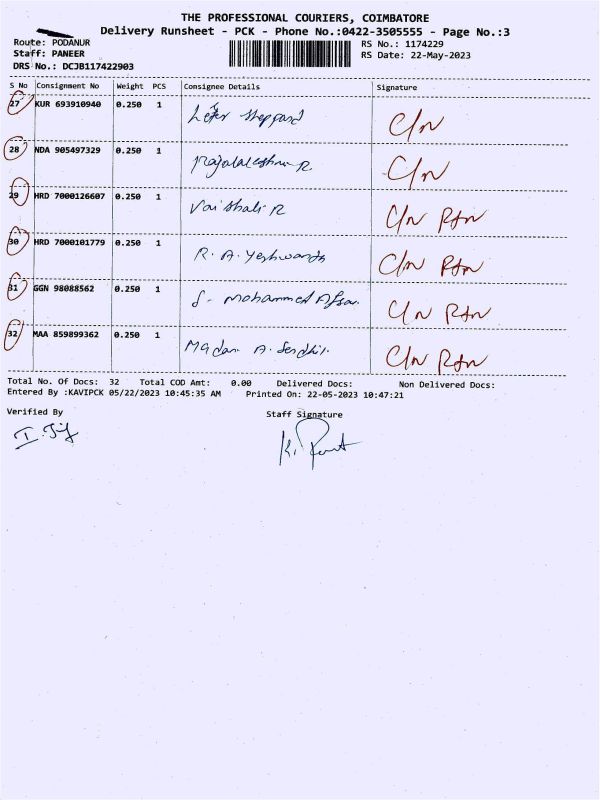 THE PROFESSIONAL COURIERS, COIMBATORE
Delivery Runsheet - PCK - Phone No.:0422-3505555 - Page No.:3
Route: PODANUR
RS No.: 1174229
Staff: PANEER
RS Date: 22-May-2023
DRS No.: DCJB117422903
S No Consignment No Weight PCS Consignee Details Signature
27 KUR 693910940 0.250 1 Sheppard C/N
28 NDA 905497329 0.250 1 R. C/N
29 HRD 7000126607 0.250 1 Vaishali R C/N RTN
30 HRD 7000101779 0.250 1 R. A. Yeshwanth C/N RTN
31 GGN 98088562 0.250 1 S. Mohammed Afsar. C/N RTN
32 MAA 859899362 0.250 1 Madan A. Sendhil. C/N RTN
Total No. Of Docs: 32 Total COD Amt: 0.00 Delivered Docs: Non Delivered Docs:
Entered By :KAVIPCK 05/22/2023 10:45:35 AM Printed On: 22-05-2023 10:47:21
Verified By
Staff Signature